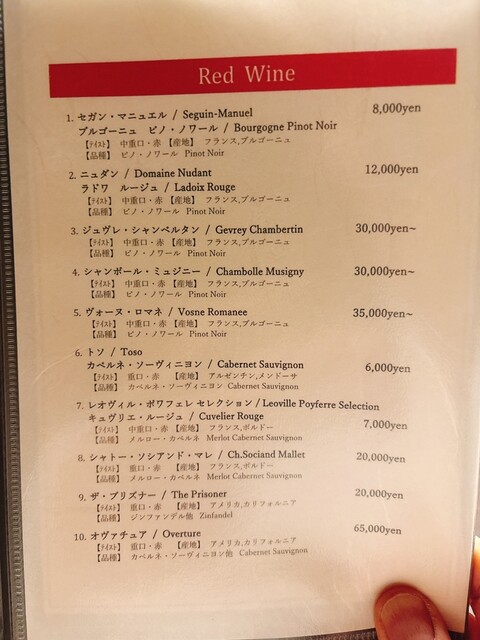 Red Wine
1. セガン・マニュエル / Seguin-Manuel 8,000yen
ブルゴーニュ ピノ・ノワール / Bourgogne Pinot Noir
【テイスト】 中重口・赤 【産地】 フランス,ブルゴーニュ
【品種】 ピノ・ノワール Pinot Noir
2. ニュダン / Domaine Nudant 12,000yen
ラドワ ルージュ / Ladoix Rouge
【テイスト】 中重口・赤 【産地】 フランス,ブルゴーニュ
【品種】 ピノ・ノワール Pinot Noir
3. ジュヴレ・シャンベルタン / Gevrey Chambertin 30,000yen~
【テイスト】 中重口・赤 【産地】 フランス,ブルゴーニュ
【品種】 ピノ・ノワール Pinot Noir
4. シャンボール・ミュジニー / Chambolle Musigny 30,000yen~
【テイスト】 中重口・赤 【産地】 フランス,ブルゴーニュ
【品種】 ピノ・ノワール Pinot Noir
5. ヴォーヌ・ロマネ / Vosne Romanee 35,000yen~
【テイスト】 中重口・赤 【産地】 フランス,ブルゴーニュ
【品種】 ピノ・ノワール Pinot Noir
6. トソ / Toso
カベルネ・ソーヴィニヨン / Cabernet Sauvignon 6,000yen
【テイスト】 重口・赤 【産地】 アルゼンチン,メンドーサ
【品種】 カベルネ・ソーヴィニヨン Cabernet Sauvignon
7. レオヴィル・ポワフェレ セレクション / Leoville Poyferre Selection
キュヴリエ・ルージュ / Cuvelier Rouge 7,000yen
【テイスト】 中重口・赤 【産地】 フランス,ボルドー
【品種】 メルロー・カベルネ Merlot Cabernet Sauvignon
8. シャトー・ソシアンド・マレ / Ch.Sociand Mallet 20,000yen
【テイスト】 重口・赤 【産地】 フランス,ボルドー
【品種】 メルロー・カベルネ Merlot Cabernet Sauvignon
9. ザ・プリズナー / The Prisoner 20,000yen
【テイスト】 重口・赤 【産地】 アメリカ,カリフォルニア
【品種】 ジンファンデル他 Zinfandel
10. オヴァチュア / Overture 65,000yen
【テイスト】 重口・赤 【産地】 アメリカ,カリフォルニア
【品種】 カベルネ・ソーヴィニヨン他 Cabernet Sauvignon